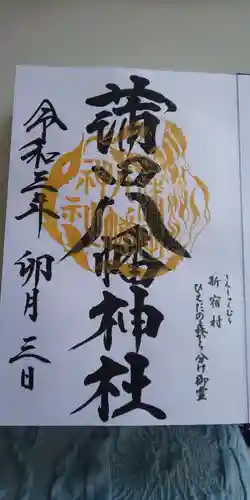 新宿村
しんしゅくむら
ひえだの森から分け御霊
蒲田八幡神社
令和三年 卯月 三日